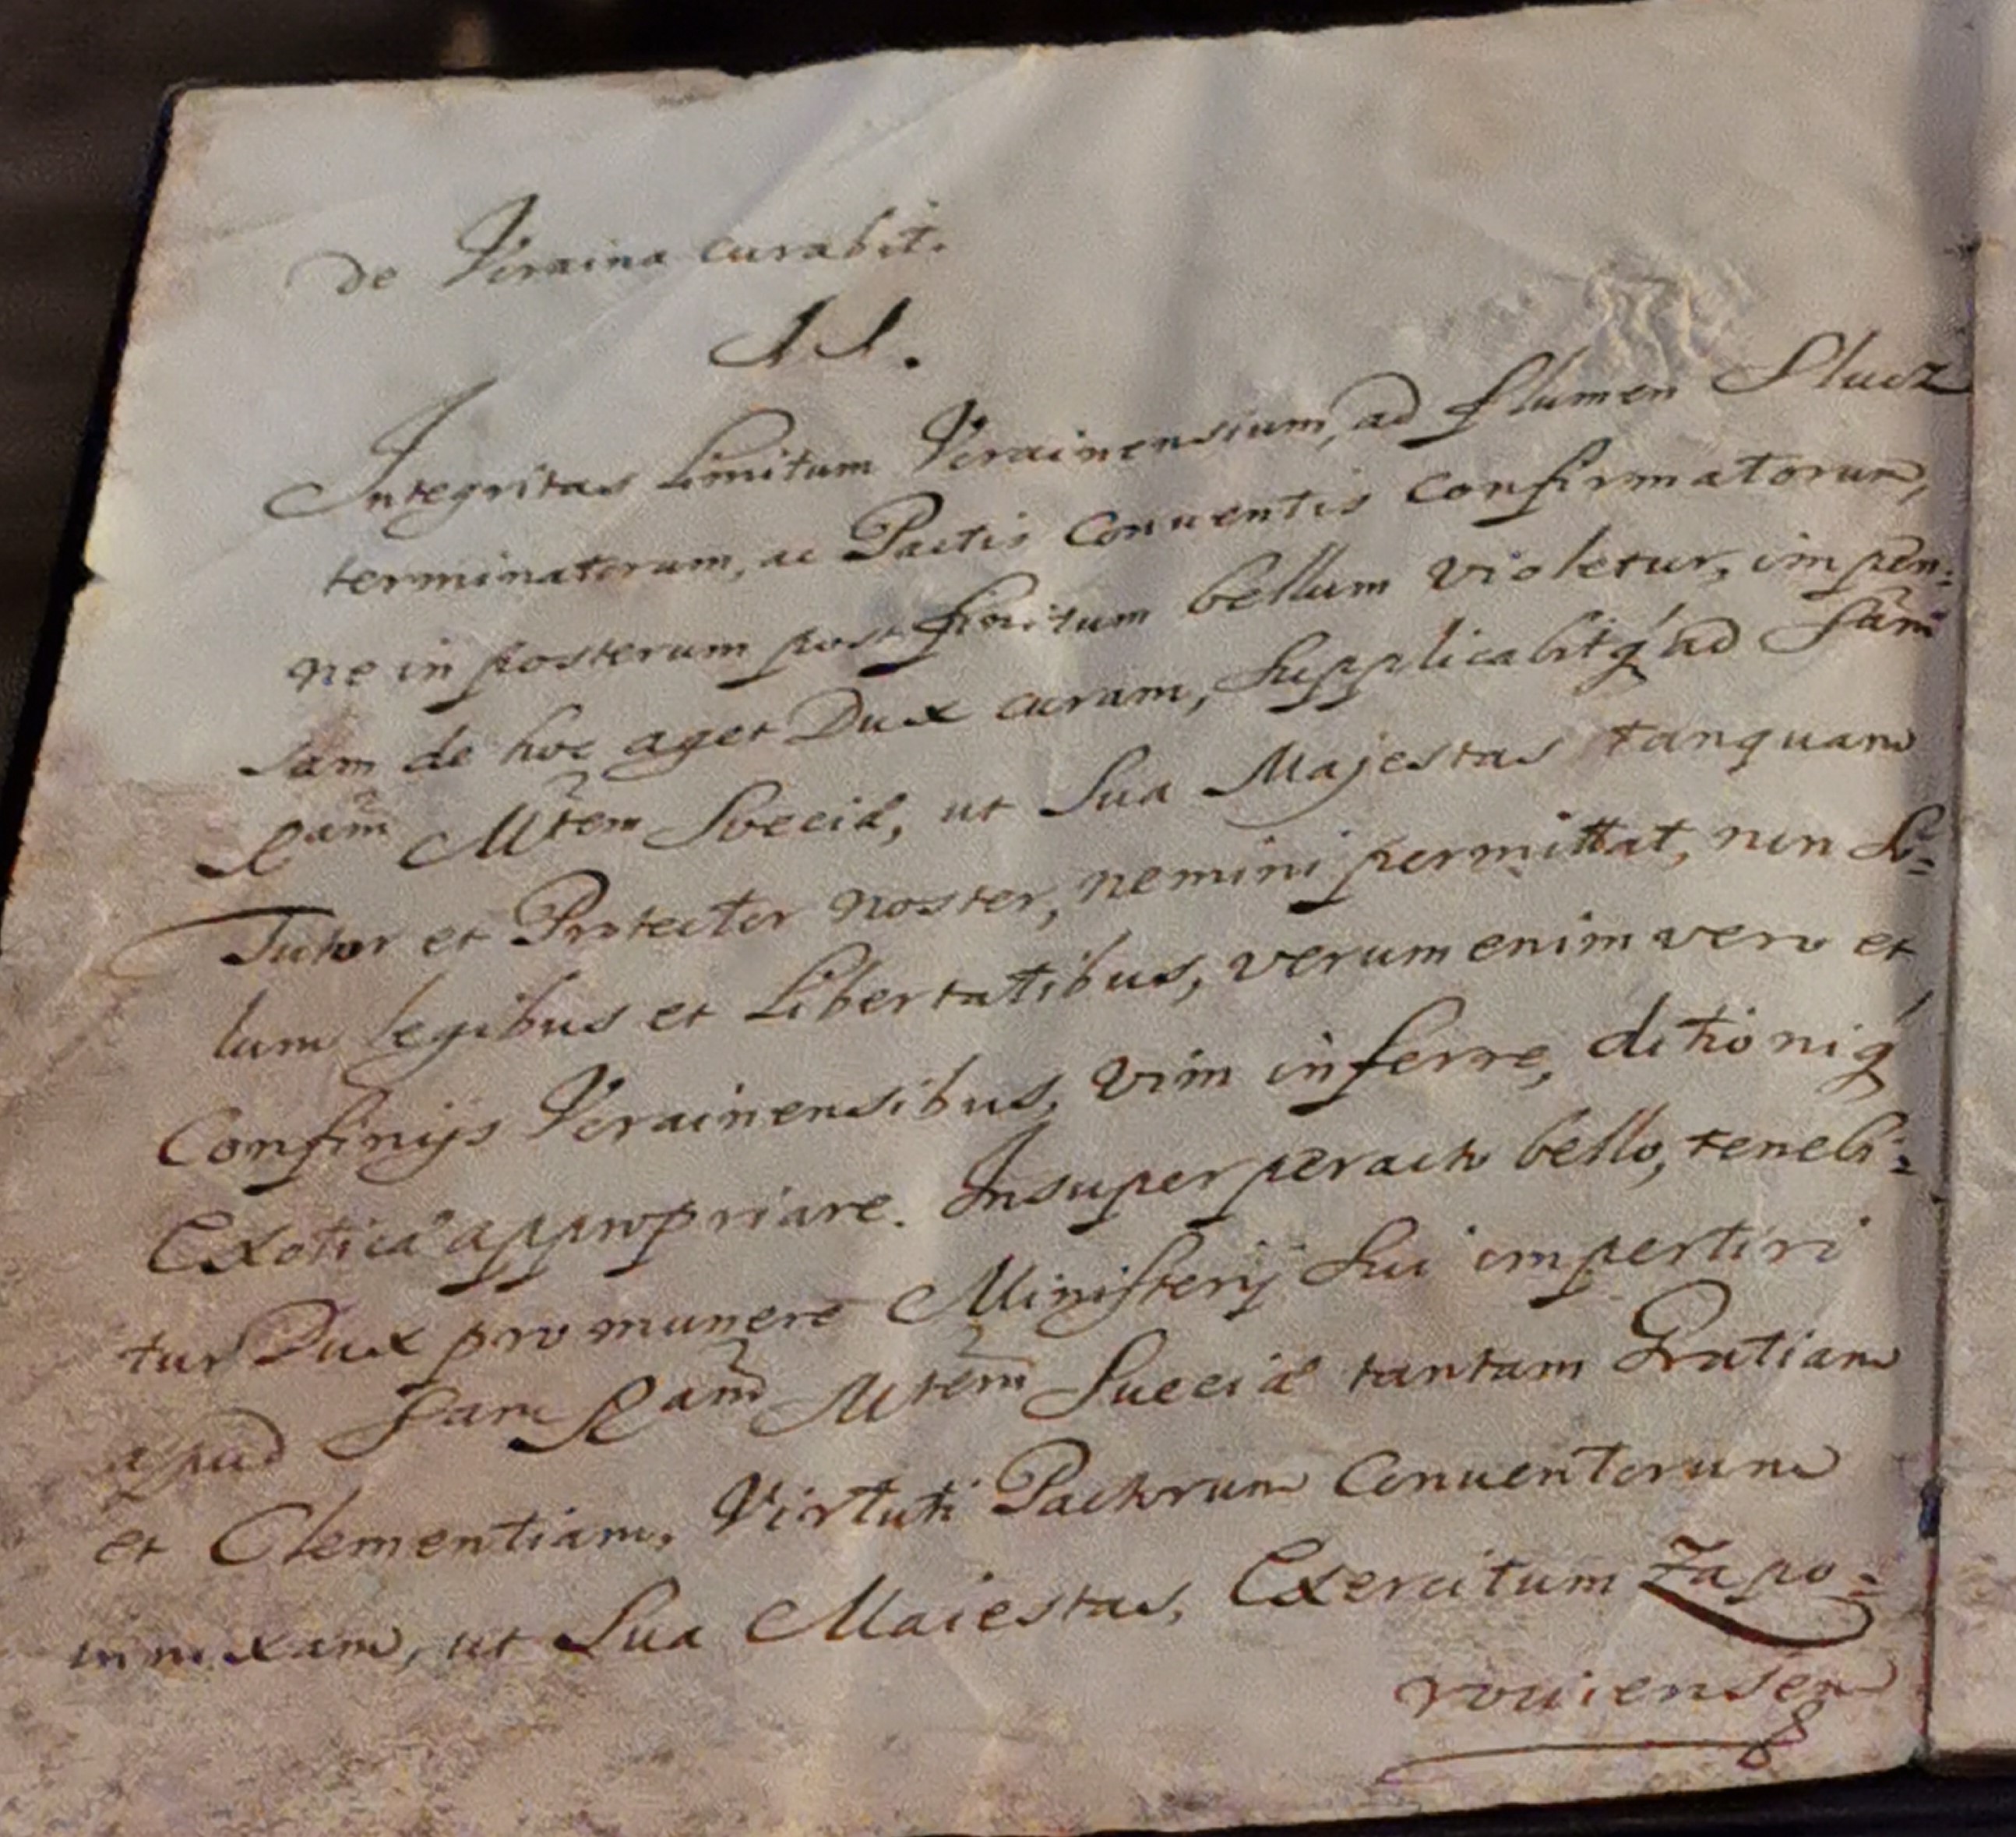 de Vcraina curabit.
II.
Integritas Limitum Vcrainensium, ad flumen Slucz
terminatorum, ac Pactis Conuentis confirmatorum,
ne in posterum post finitum bellum violetur, impen:
sam de hoc aget Dux curam, supplicabitq́ ad Sam̃
Ram̃ Mtem̃ Sveciæ, ut Sua Majestas tanquam
Tutor et Protector noster, nemini permittat, non So=
lum legibus et Libertatibus, verum enim vero et
Confinijs Vcrainensibus, vim inferre, ditioniq́
Exoticæ appropriare. Insuper peracto bello, tenebi=
tur Dux pro munere Ministerij Sui impertiri
apud Sam Ram̃ Mtem̃ Sueciæ tantam Gratiam
et Clementiam, Virtuti Pactorum Conuentorum
innixam, ut Sua Maiestas, Exercitum Zapo=
rouiensem